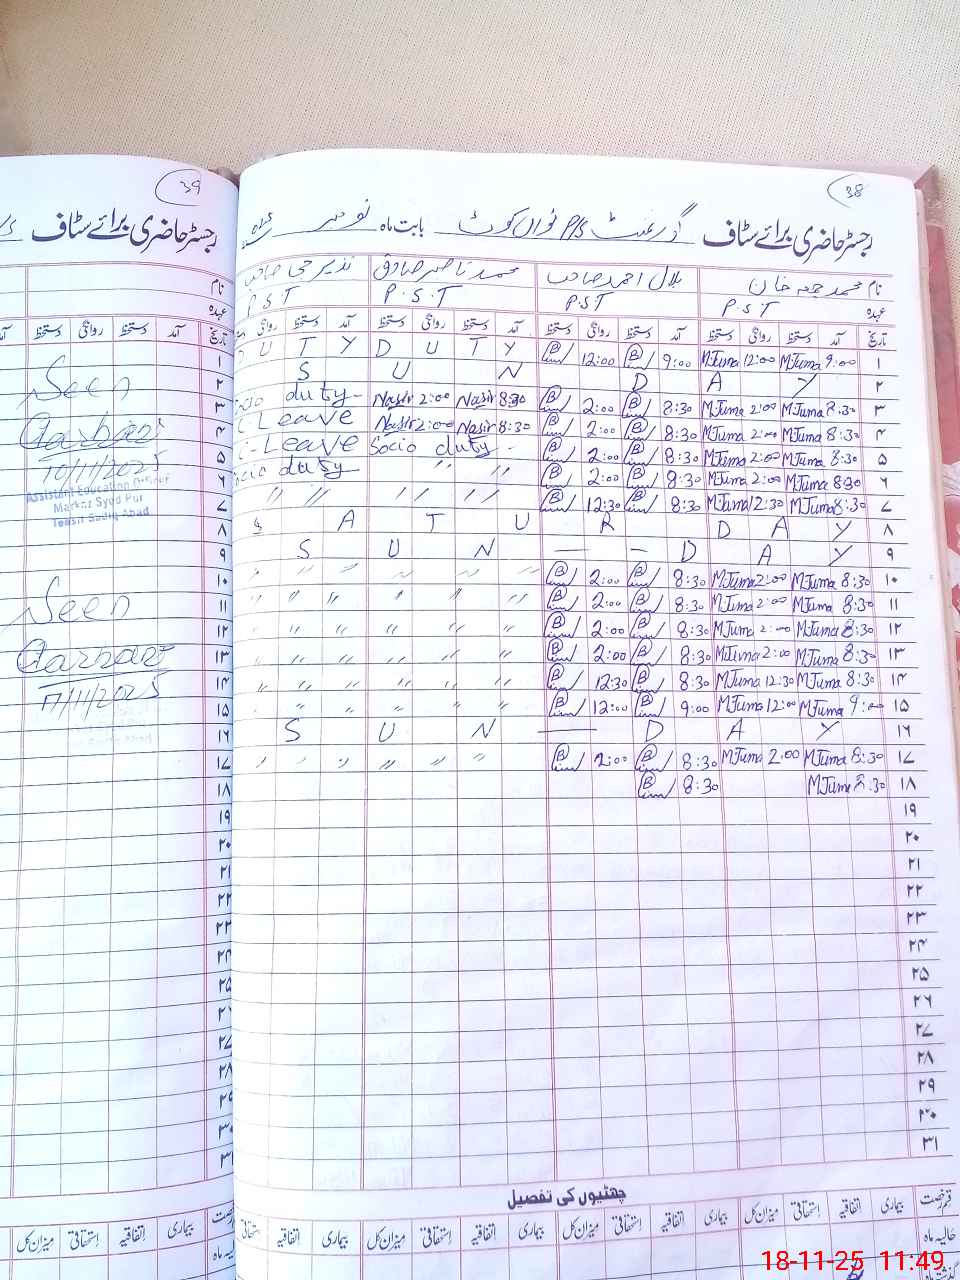 38
رجسٹر حاضری برائے سٹاف گورنمنٹ P/S نواں کوٹ بابت ماہ نومبر
نام محمد جمعہ خان بلال احمد صاحب محمد ناصر صادق نذیر
عہدہ P.S.T P.S.T P.S.T P.S.T
تاریخ آمد دستخط روانگی دستخط آمد دستخط روانگی دستخط آمد دستخط روانگی دستخط آمد دستخط روانگی
۱ 9:00 MJuma 12:00 MJuma 9:00 12:00 D U T Y D U T Y
۲ S U N D A Y
۳ 8:30 MJuma 2:00 MJuma 8:30 2:00 8:30 Nasir 2:00 Nasir Socio duty
۴ 8:30 MJuma 2:00 MJuma 8:30 2:00 8:30 Nasir 2:00 Nasir C Leave
۵ 8:30 MJuma 2:00 MJuma 8:30 2:00 Socio duty C-Leave
۶ 8:30 MJuma 2:00 MJuma 8:30 2:00 " " Socio duty
۷ 8:30 MJuma 12:30 MJuma 8:30 12:30 " " " " " "
۸ S A T U R D A Y
۹ S U N — — D A Y
۱۰ 8:30 MJuma 2:00 MJuma 8:30 2:00 " " " " " " "
۱۱ 8:30 MJuma 2:00 MJuma 8:30 2:00 " " " " " " "
۱۲ 8:30 MJuma 2:00 MJuma 8:30 2:00 " " " " " " "
۱۳ 8:30 MJuma 2:00 MJuma 8:30 2:00 " " " " " " "
۱۴ 8:30 MJuma 12:30 MJuma 8:30 12:30 " " " " " " "
۱۵ 9:00 MJuma 12:00 MJuma 9:00 12:00 " " " " " " "
۱۶ S U N — D A Y
۱۷ 8:30 MJuma 2:00 MJuma 8:30 2:00 " " " " " "
۱۸ 8:30 MJuma 8:30
۱۹
۲۰
۲۱
۲۲
۲۳
۲۴
۲۵
۲۶
۲۷
۲۸
۲۹
۳۰
۳۱
چھٹیوں کی تفصیل
قسم رخصت بیماری اتفاقیہ استحقاقی میزان کل بیماری اتفاقیہ استحقاقی میزان کل بیماری اتفاقیہ استحقاقی میزان کل بیماری اتفاقیہ
حالیہ ماہ
گذشتہ ماہ
39
رجسٹر حاضری برائے سٹاف
نام
عہدہ
تاریخ آمد دستخط روانگی دستخط
۱
۲
۳
۴
۵
۶
۷
۸
۹
۱۰
۱۱
۱۲
۱۳
۱۴
۱۵
۱۶
۱۷
۱۸
۱۹
۲۰
۲۱
۲۲
۲۳
۲۴
۲۵
۲۶
۲۷
۲۸
۲۹
۳۰
۳۱
Seen
10/11/2025
Assistant Education Officer
Markaz Syed Pur
Tehsil Sadiq Abad
Seen
17/11/2025
رخصت بیماری اتفاقیہ استحقاقی میزان کل
حالیہ ماہ
18-11-25 11:49